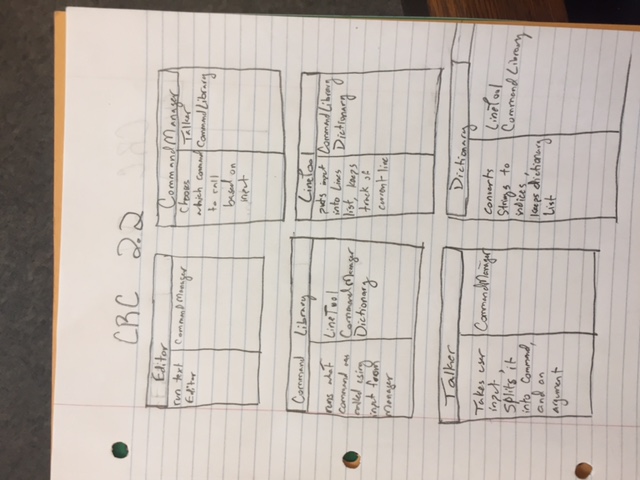 CRC 2.2
Editor
run text
Editor
CommandManager
CommandManager
Chooses
which command
to call
based on
input
Talker
CommandLibrary
Command Library
runs what
command was
called using
input from
Manager
LineTool
CommandManager
Dictionary
LineTool
puts input
into Lines
list, keeps
track of
current line
CommandLibrary
Dictionary
Talker
Takes user
input,
splits it
into Command,
and an
argument
CommandManager
Dictionary
converts
Strings to
indices,
keeps dictionary
List
LineTool
Command Library